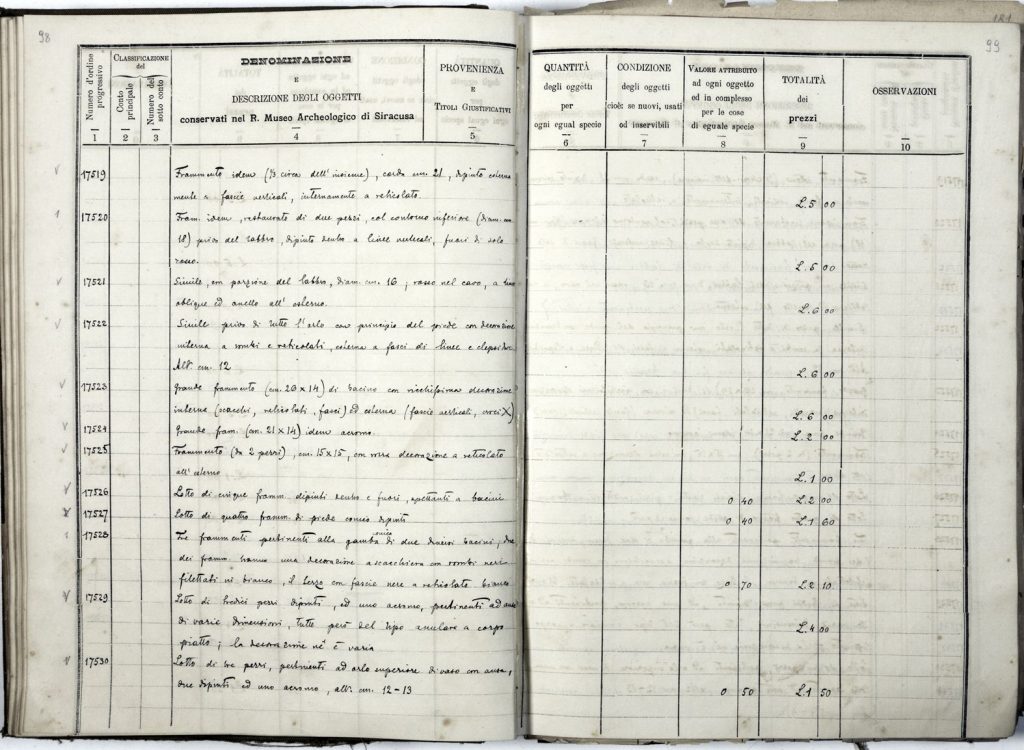 98
Numero d'ordine progressivo
CLASSIFICAZIONE del
Conto principale
Numero del sotto conto
DENOMINAZIONE
E
DESCRIZIONE DEGLI OGGETTI
conservati nel R. Museo Archeologico di Siracusa
PROVENIENZA
E
TITOLI GIUSTIFICATIVI
1 2 3 4 5
17519 Frammento idem (⅓ circa dell'insieme), corda cm. 21, dipinto esterna
mente a fascie verticali, internamente a reticolato.
17520 Fram. idem, restaurato di due pezzi, col contorno inferiore (diam. cm.
18) privo del labbro, dipinto dentro a linee verticali, fuori di solo
rosso.
17521 Simile, con porzione del labbro, diam. cm. 16; rosso nel cavo, a linee
oblique ed anello all'esterno.
17522 Simile privo di tutto l'orlo con principio del piede con decorazione
interna a rombi e reticolati, esterna a fasci di linee e clepsidre
Alt. cm. 12
17523 Grande frammento (cm. 26 x 14) di bacino con ricchissima decorazione
interna (scacchi, reticolati, fasci) ed esterna (fascie verticali, croci X)
17524 Grande fram. (cm. 21 x 14) idem acromo.
17525 Frammento (in 2 pezzi), cm. 15 x 15, con rozza decorazione a reticolato
all'esterno
17526 Lotto di cinque framm. dipinti dentro e fuori, spettanti a bacini
17527 Lotto di quattro framm. di piede conico dipinti
17528 Tre frammenti pertinenti alla gamba conica di due diversi bacini; due
dei framm. hanno una decorazione a scacchiera con rombi neri
filettati in bianco, il terzo con fascie nere a reticolato bianco
17529 Lotto di tredici pezzi dipinti, ed uno acromo, pertinenti ad anse
di varie dimensioni, tutte però del tipo anulare a corpo
piatto; la decorazione ne è varia
17530 Lotto di tre pezzi, pertinenti ad orlo superiore di vaso con ansa,
due dipinti ed uno acromo, alt. cm. 12-13
181
99
QUANTITÀ
degli oggetti
per
ogni egual specie
CONDIZIONE
degli oggetti
cioè: se nuovi, usati
od inservibili
VALORE ATTRIBUITO
ad ogni oggetto
ed in complesso
per le cose
di eguale specie
TOTALITÀ
dei
prezzi
OSSERVAZIONI
6 7 8 9 10
L. 5 00
L. 5 00
L. 6 00
L. 6 00
L. 6 00
L. 2 00
L. 1 00
0 40 L. 2 00
0 40 L. 1 60
0 70 L. 2 10
L. 4 00
0 50 L. 1 50